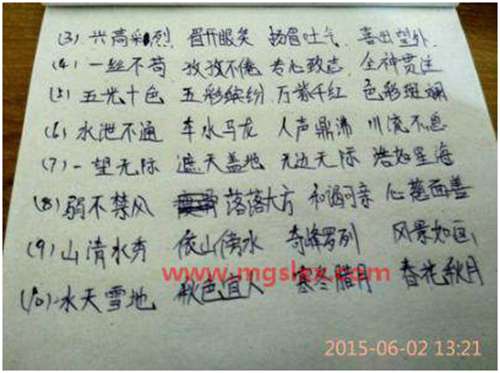 (3) 兴高彩烈 眉开眼笑 扬眉吐气 喜出望外
(4) 一丝不苟 孜孜不倦 专心致志 全神贯注
(5) 五光十色 五彩缤纷 万紫千红 色彩斑斓
(6) 水泄不通 车水马龙 人声鼎沸 川流不息
(7) 一望无际 遮天盖地 无边无际 浩如星海
(8) 弱不禁风 落落大方 和谒可亲 心慈面善
(9) 山清水秀 依山傍水 奇峰罗列 风景如画
www.mgslex.com
(10) 水天雪地 秋色宜人 寒冬腊月 春花秋月
2015-06-02 13:21